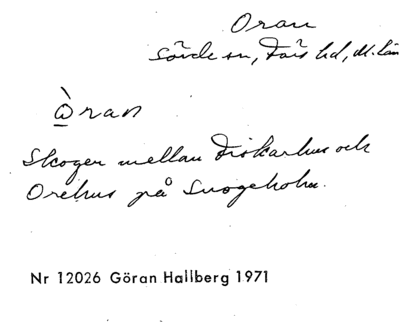 Oran
Sövde sn, Färs hd, M. län
ò̲ran
Skogen mellan Fiskarhus och
Orehus på Snogeholm.
Nr 12026 Göran Hallberg 1971